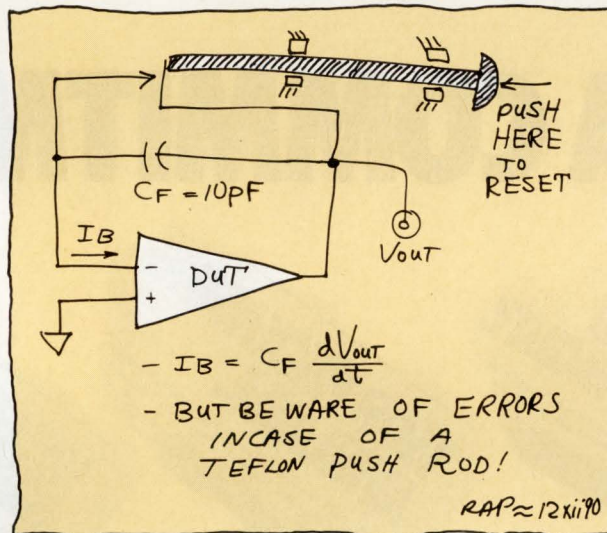 PUSH
HERE
TO
RESET
CF = 10pF
IB
VOUT
DUT
-
+
- IB = CF dVOUT/dt
- BUT BEWARE OF ERRORS
INCASE OF A
TEFLON PUSH ROD!
RAP≈12xii90